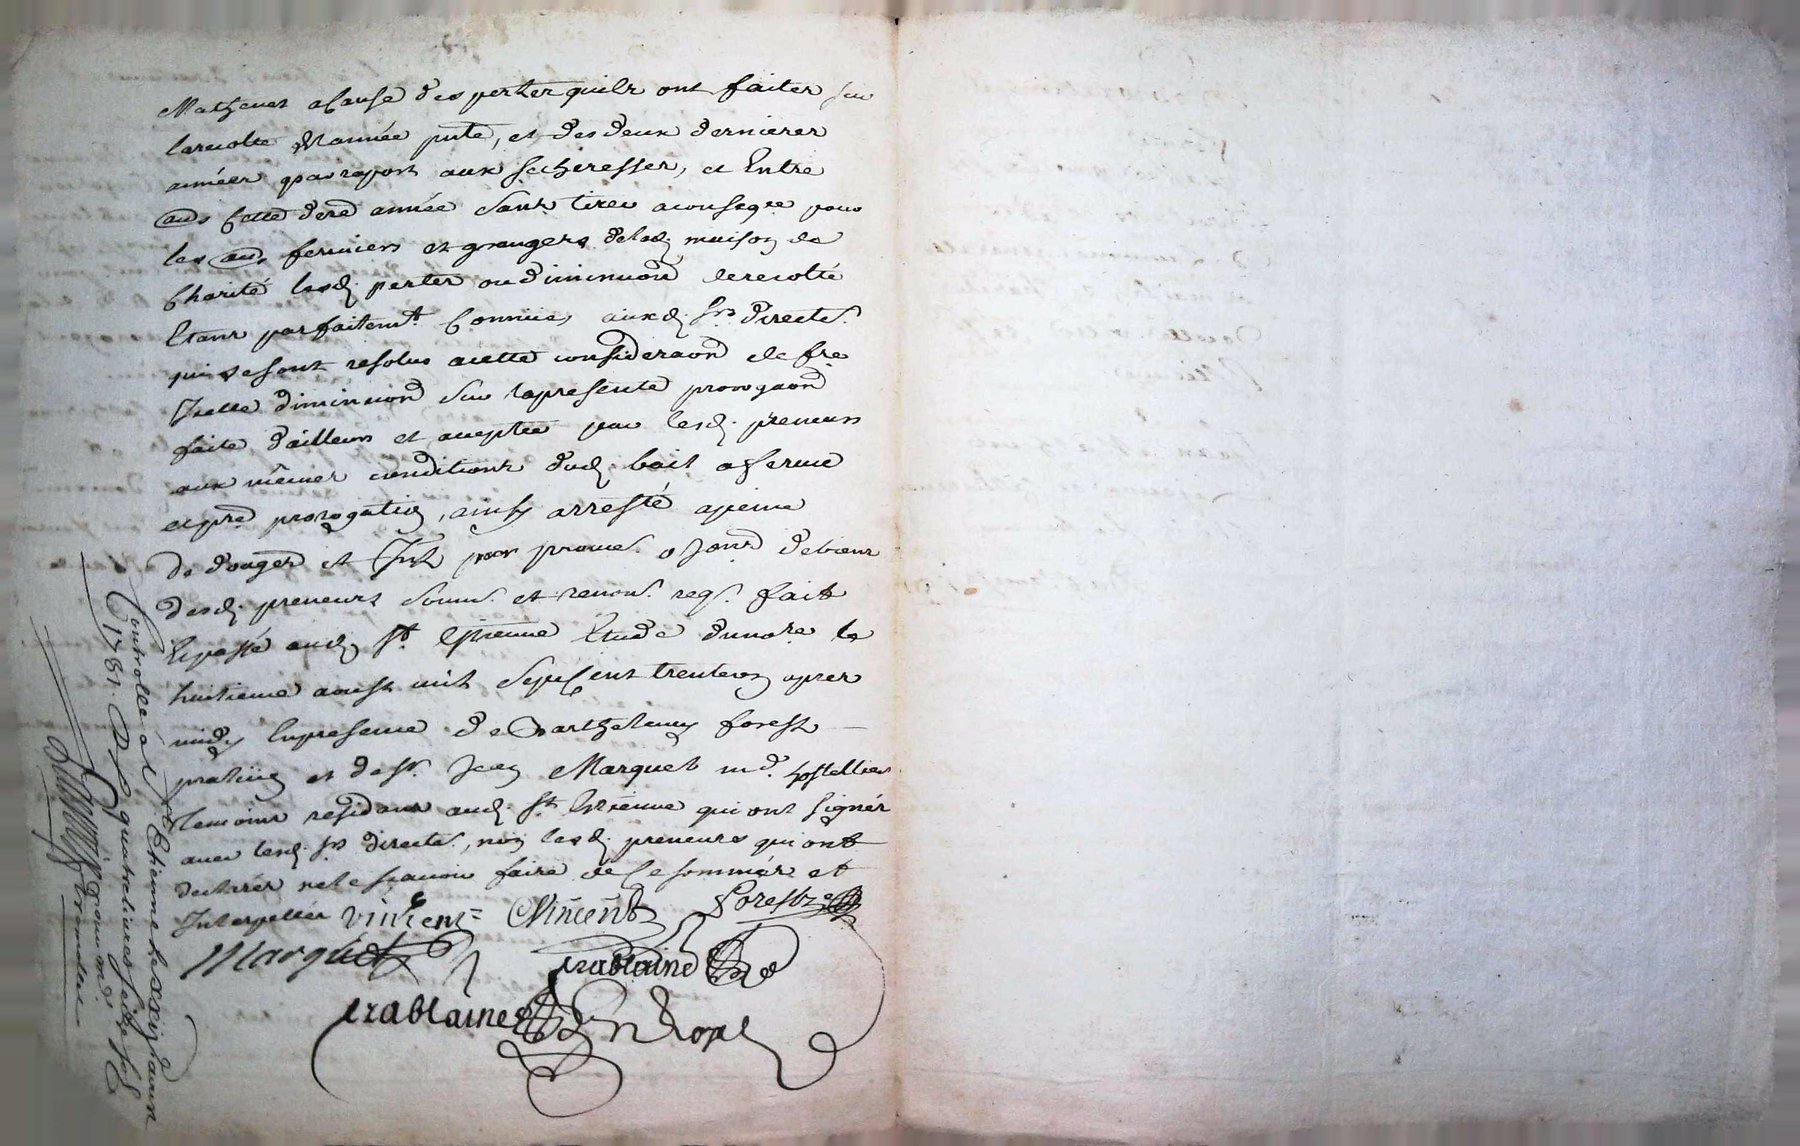 Mathevet a cause des pertes quils ont faites sur
la recolte de lannée pnte, et des deux dernieres
années par raport aux secheresses, et Entre
aus cette dere année sans tirer a conseqce pour
les aus fermiers et grangers de lad maison de
Charité lesd pertes ou diminuons de recolte
Etant parfaitemt Connües auxd srs directs
qui se sont resolus a cette consideraon de fre
Icelle diminuon sur la presente prorogaon
faite d'ailleurs et aceptée par lesd preneurs
aux mêmes conditions dud bail a ferme
et pred prorogation, ainsy arresté a peine
de domages et Int par promes obligaon de biens
desd preneurs soums et renons reqs fait
Et passé aud St Etienne Etude du nore le
huitieme aoust mil sept cent trente un apres
midy En presence de Barthelemy forest
praticien et de sr Jean Marquet md hostellier
temoins residans aud St Etienne qui ont signés
avec lesd srs directs, non lesd preneurs qui ont
declarés ne le scavoir faire de ce sommés et
Interpellés Vincent CVincent Forest
Marquet trablaine
trablaine
Controllé a St Etienne le xxij aoust
1731 Rs quatre livres seize sols